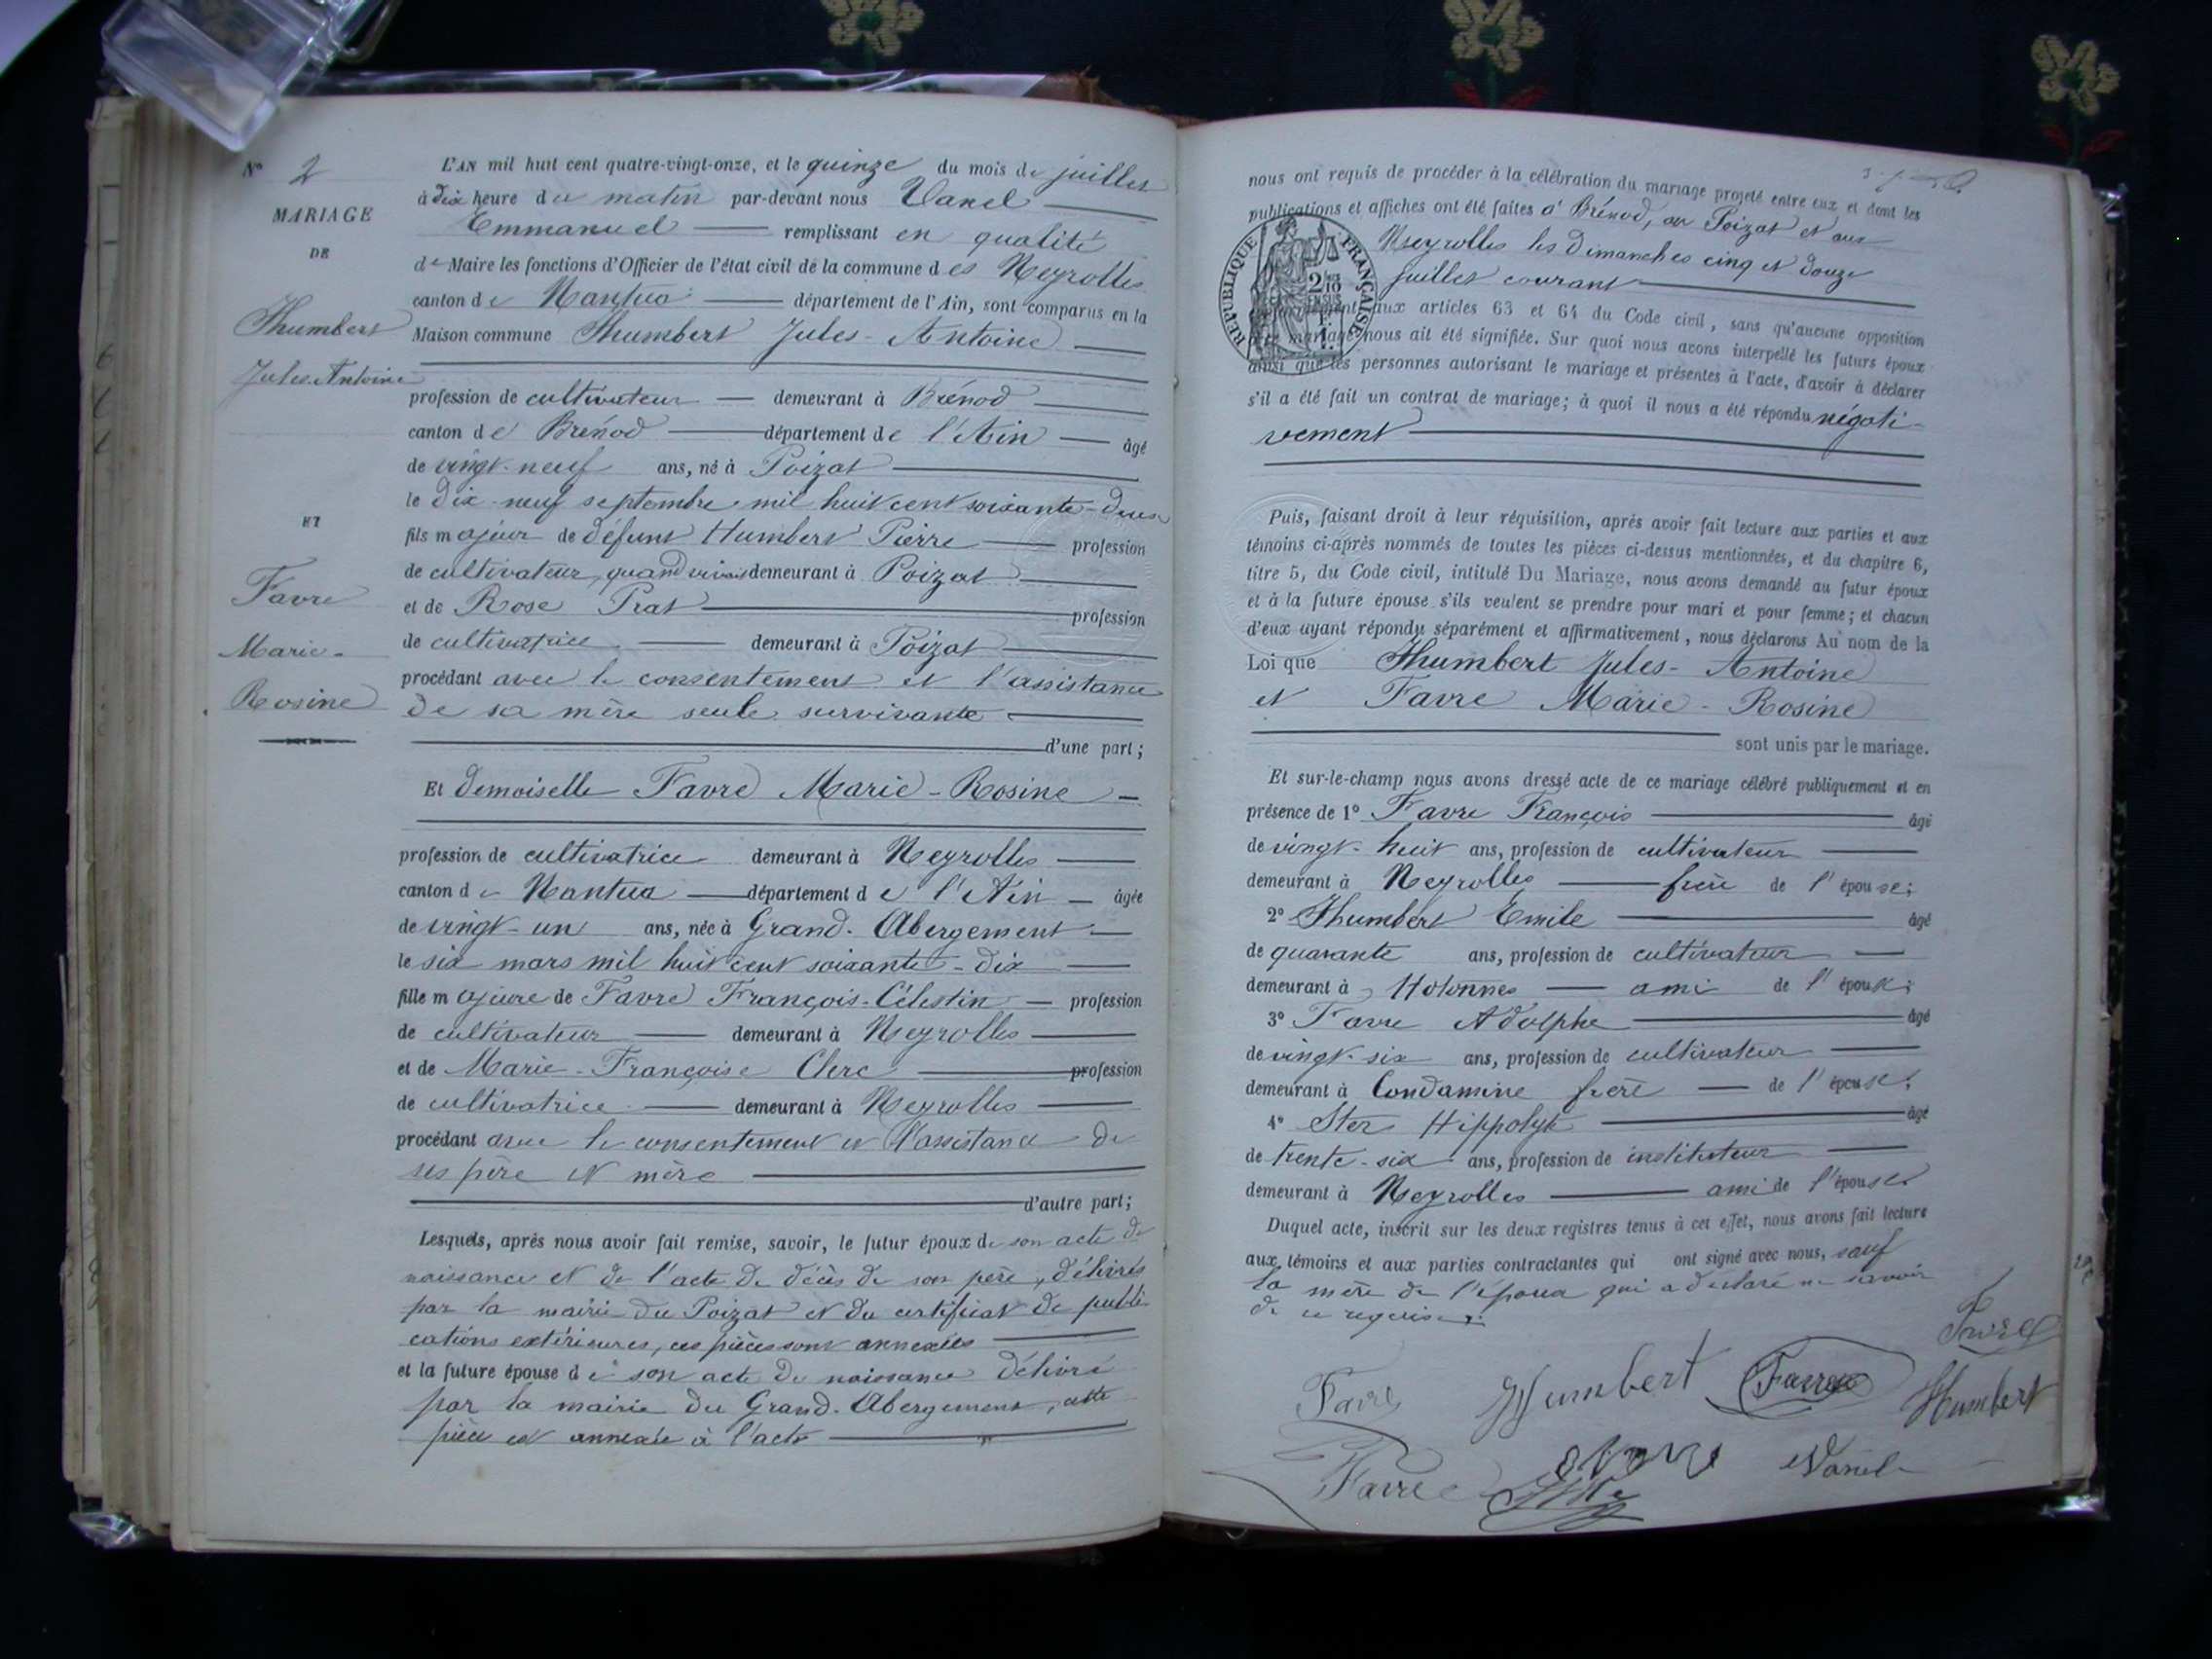 N° 2
MARIAGE
DE
Humbert
Jules-Antoine
ET
Favre
Marie-
Rosine
L'AN mil huit cent quatre-vingt-onze, et le quinze du mois de juillet
à dix heure du matin par-devant nous Vanel
Emmanuel remplissant en qualité
de Maire les fonctions d'Officier de l'état civil de la commune des Neyrolles
canton de Nantua département de l'Ain, sont comparus en la
Maison commune Humbert Jules-Antoine
profession de cultivateur demeurant à Brénod
canton de Brénod département de l'Ain âgé
de vingt-neuf ans, né à Poizat
le dix-neuf septembre mil huit cent soixante-deux
fils majeur de défunt Humbert Pierre profession
de cultivateur, quand vivait demeurant à Poizat
et de Rose Prat profession
de cultivatrice demeurant à Poizat
procédant avec le consentement et l'assistance
de sa mère seule survivante
d'une part;
Et demoiselle Favre Marie-Rosine
profession de cultivatrice demeurant à Neyrolles
canton de Nantua département de l'Ain âgée
de vingt-un ans, née à Grand-Abergement
le six mars mil huit cent soixante-dix
fille majeure de Favre François-Célestin profession
de cultivateur demeurant à Neyrolles
et de Marie-Françoise Clerc profession
de cultivatrice demeurant à Neyrolles
procédant avec le consentement et l'assistance de
ses père et mère
d'autre part;
Lesquels, après nous avoir fait remise, savoir, le futur époux de son acte de
naissance et de l'acte de décès de son père, délivrés
par la mairie du Poizat et du certificat de publi-
cations extérieures, ces pièces sont annexées
et la future épouse de son acte de naissance délivré
par la mairie du Grand-Abergement, cette
pièce est annexée à l'acte
nous ont requis de procéder à la célébration du mariage projeté entre eux, et dont les
publications et affiches ont été faites à Brénod, au Poizat et aux
Neyrolles les dimanches cinq et douze
juillet courant
RÉPUBLIQUE FRANÇAISE
aux articles 63 et 64 du Code civil, sans qu'aucune opposition
mariage nous ait été signifiée. Sur quoi nous avons interpellé les futurs époux
ainsi que les personnes autorisant le mariage et présentes à l'acte, d'avoir à déclarer
s'il a été fait un contrat de mariage; à quoi il nous a été répondu négati-
vement
Puis, faisant droit à leur réquisition, après avoir fait lecture aux parties et aux
témoins ci-après nommés de toutes les pièces ci-dessus mentionnées, et du chapitre 6,
titre 5, du Code civil, intitulé Du Mariage, nous avons demandé au futur époux
et à la future épouse s'ils veulent se prendre pour mari et pour femme; et chacun
d'eux ayant répondu séparément et affirmativement, nous déclarons Au nom de la
Loi que Humbert Jules-Antoine
et Favre Marie-Rosine
sont unis par le mariage.
Et sur-le-champ nous avons dressé acte de ce mariage célébré publiquement et en
présence de 1° Favre François âgé
de vingt-huit ans, profession de cultivateur
demeurant à Neyrolles frère de l'épouse;
2° Humbert Emile âgé
de quarante ans, profession de cultivateur
demeurant à Hotonnes ami de l'époux;
3° Favre Adolphe âgé
de vingt-six ans, profession de cultivateur
demeurant à Condamine frère de l'épouse;
4° Ster Hippolyte âgé
de trente-six ans, profession de instituteur
demeurant à Neyrolles ami de l'épouse
Duquel acte, inscrit sur les deux registres tenus à cet effet, nous avons fait lecture
aux témoins et aux parties contractantes qui ont signé avec nous, sauf
la mère de l'époux qui a déclaré ne savoir
de ce requise.
Favre
Favre Humbert Favre Humbert
Favre Vanel